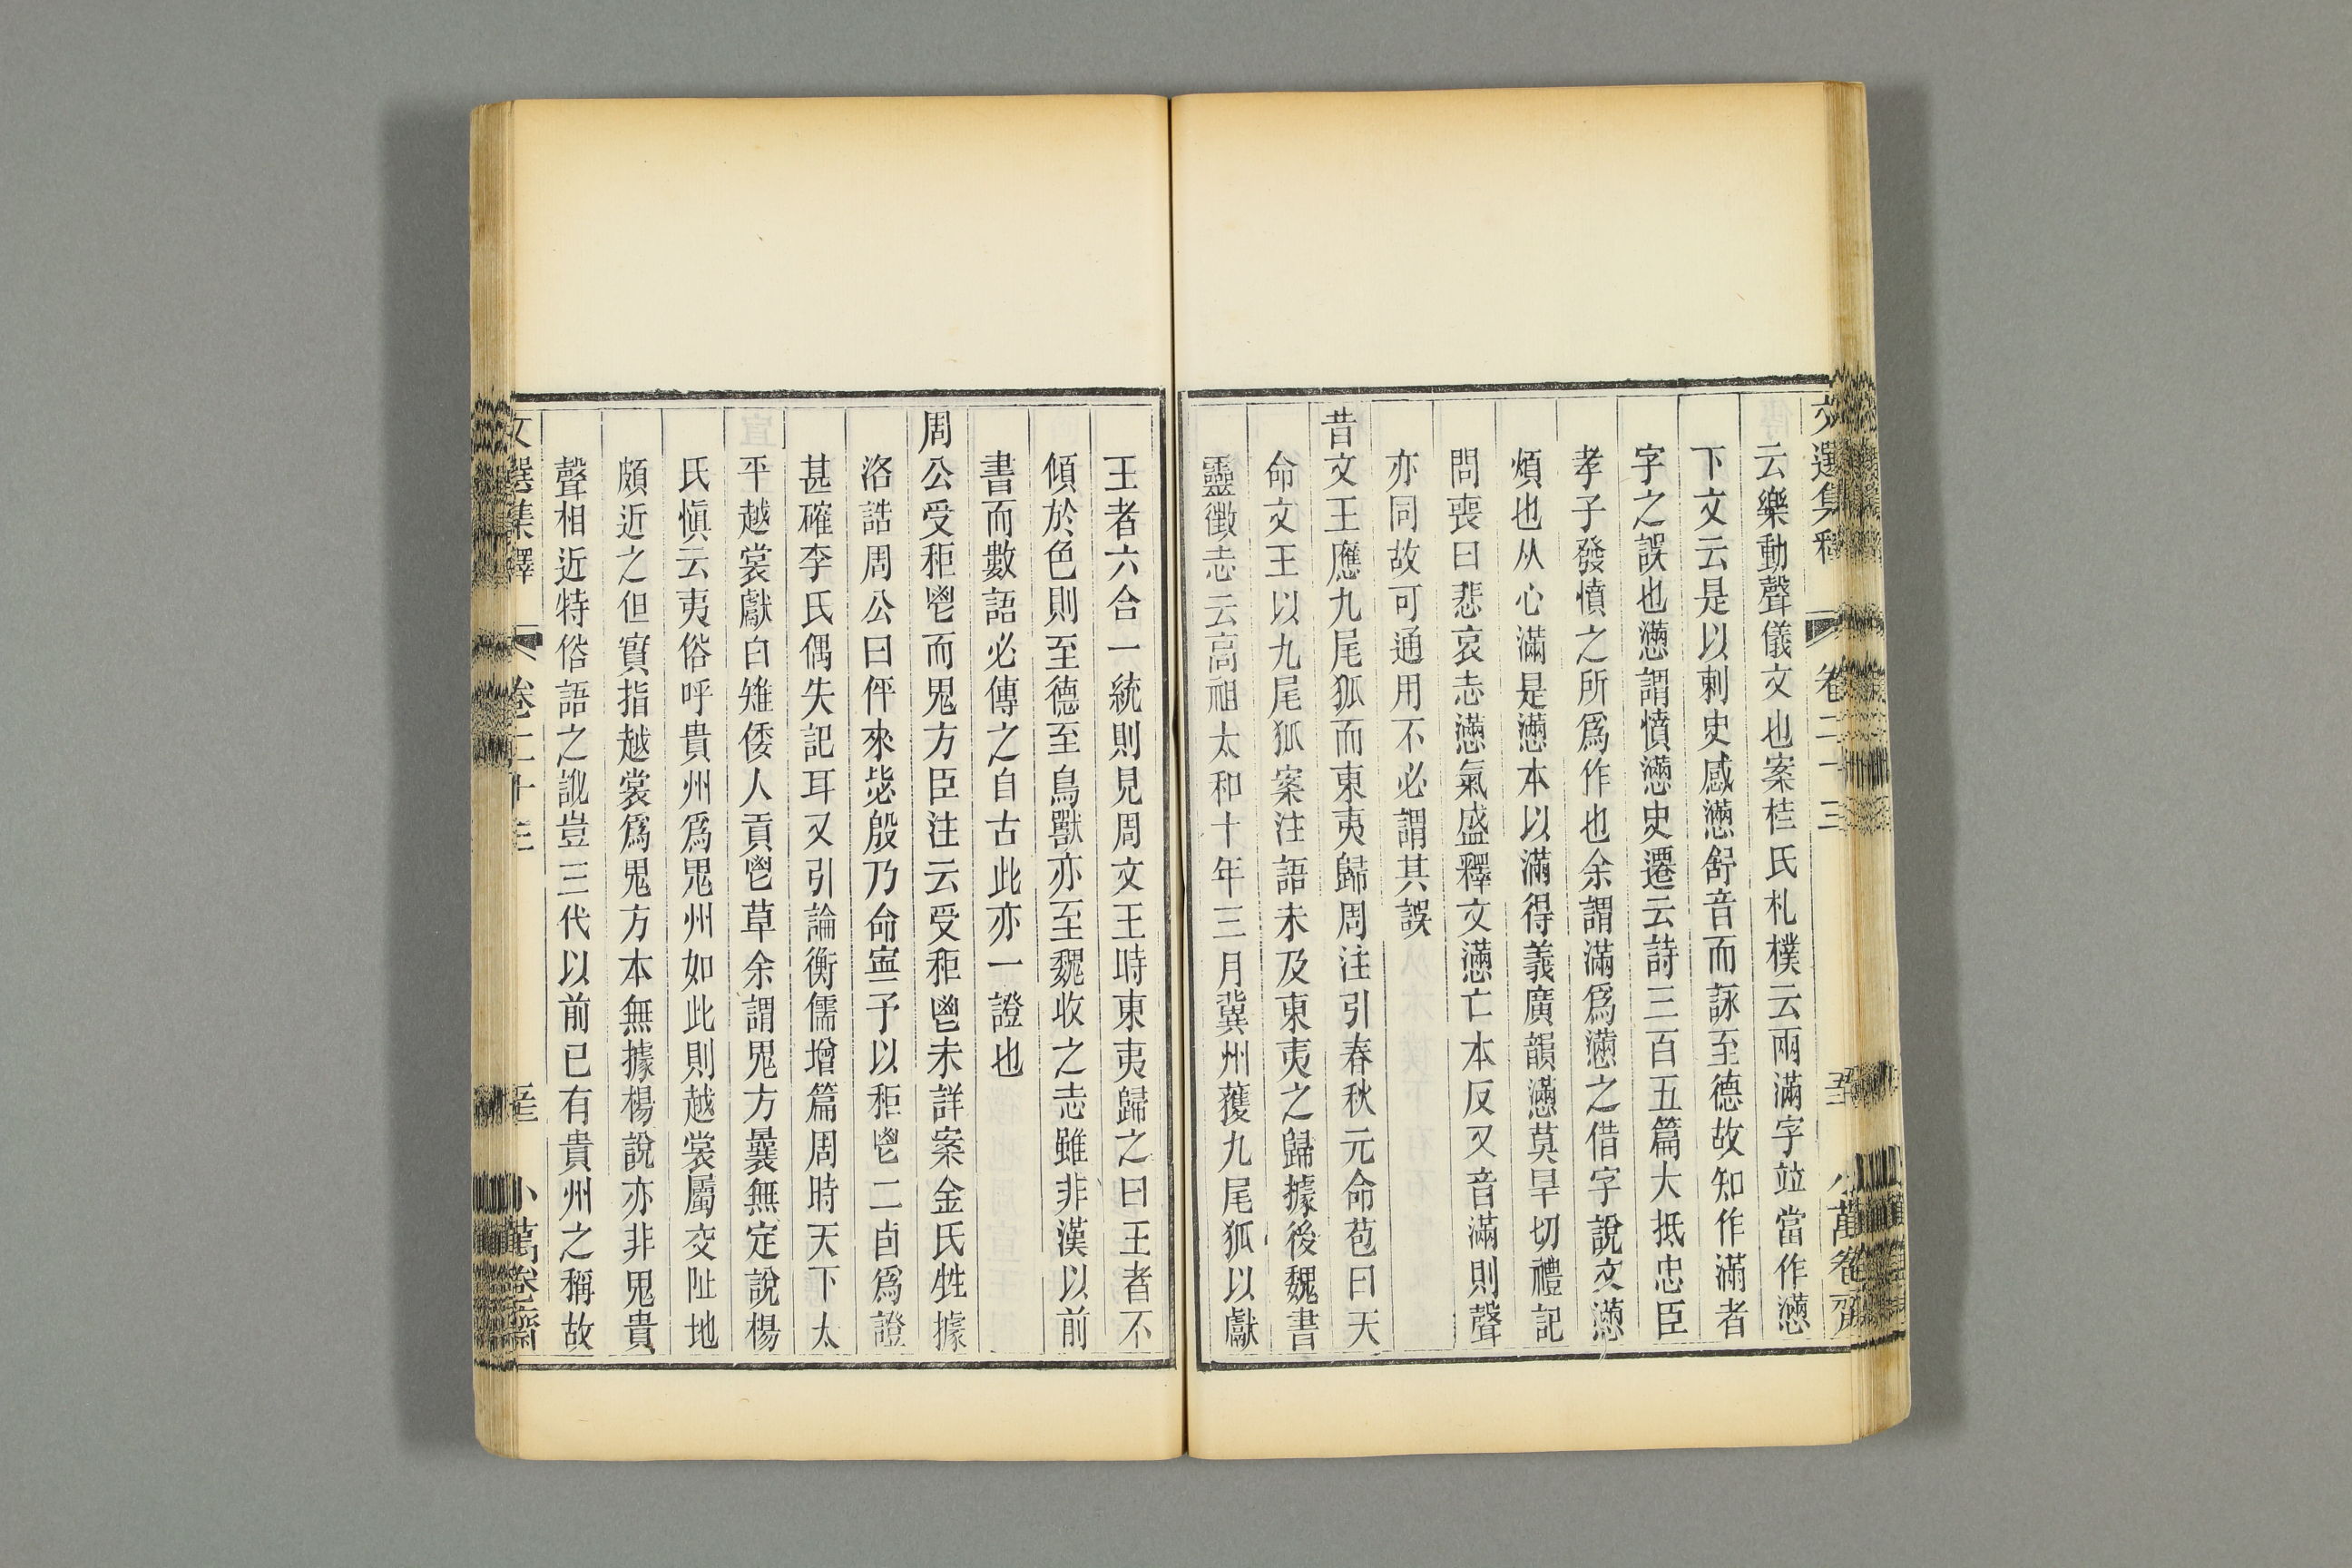 云樂動聲儀文也案桂氏札樸云兩滿字竝當作懣
下文云是以刺史感懣舒音而詠至德故知作滿者
字之誤也懣謂憤懣史遷云詩三百五篇大抵忠臣
孝子發憤之所爲作也余謂滿爲懣之借字說文懣
煩也从心滿是懣本以滿得義廣韻懣莫旱切禮記
問喪曰悲哀志懣氣盛釋文懣亡本反又音滿則聲
亦同故可通用不必謂其誤
昔文王應九尾狐而東夷歸周注引春秋元命苞曰天
命文王以九尾狐案注語未及東夷之歸據後魏書
靈徵志云高祖太和十年三月冀州獲九尾狐以獻
王者六合一統則見周文王時東夷歸之曰王者不
傾於色則至德至鳥獸亦至魏收之志雖非漢以前
書而數語必傳之自古此亦一證也
周公受秬鬯而鬼方臣注云受秬鬯未詳案金氏甡據
洛誥周公曰伻來毖殷乃命寍予以秬鬯二卣爲證
甚確李氏偶失記耳又引論衡儒增篇周時天下太
平越裳獻白雉倭人貢鬯草余謂鬼方曩無定說楊
氏愼云夷俗呼貴州爲鬼州如此則越裳屬交阯地
頗近之但實指越裳爲鬼方本無據楊說亦非鬼貴
聲相近特俗語之訛豈三代以前已有貴州之稱故
文選集釋 卷二十三 小萬卷齋